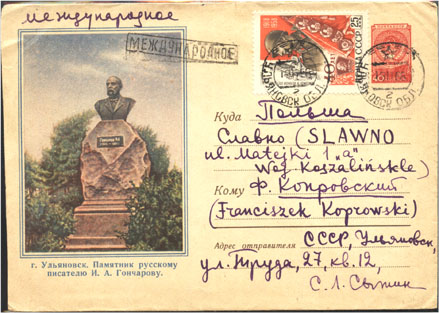 международное
МЕЖДУНАРОДНОЕ
25
ПОЧТА СССР
г. Ульяновск. Памятник русскому
писателю И. А. Гончарову.
Куда Польша
Славно (SLAWNO
ul. Matejki 1 „a"
Woj. Koszalińskie)
Кому Ф. Копровский
(Franciszek Koprowski)
Адрес отправителя СССР, Ульяновск,
ул. Труда, 27, кв. 12,
С. Л. Сыткин